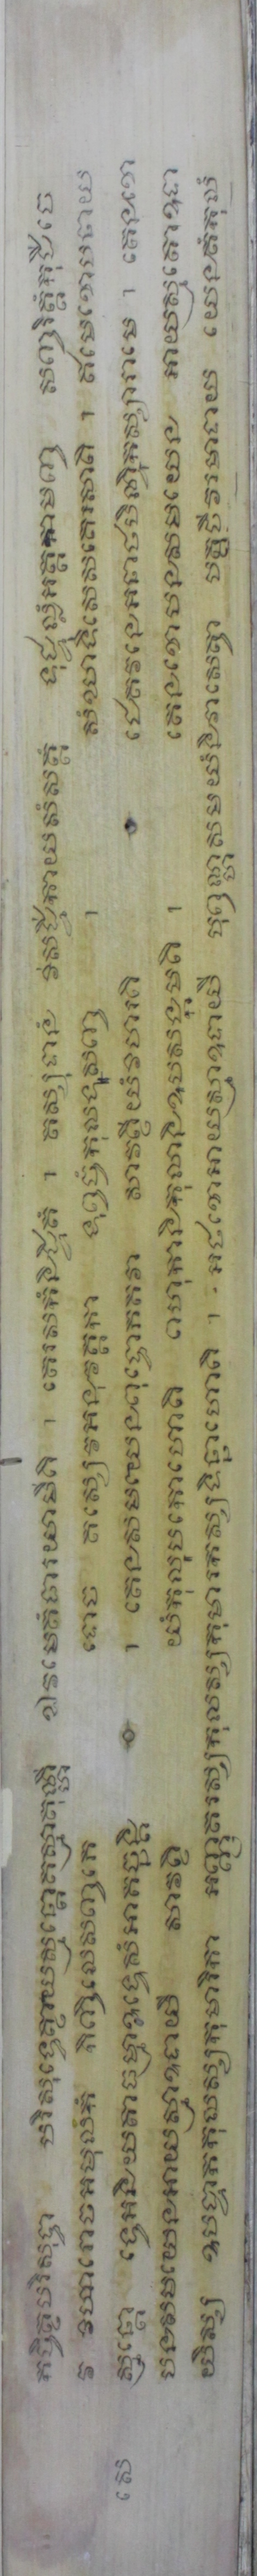 កច្ចិត្ថបរិសុទ្ធា បរិសុទ្ធេត្ថាយស្មន្តោតស្មាតុណ្ហី ឯវមេតំធារយាមីតិ ។ តេរសកំនិដ្ឋិតំ ។ តស្សុទានំ វិសដ្ឋិកាយសំសគ្គំ ទុដ្ឋុល្លំអត្តកាមញ្ច សញ្ចរិត្តំកុដីចេ
វ វិហារោចអមុលកំ កិញ្ចិលេសញ្ចភេ ទោច តស្សេវអនុវត្តកា ទុព្វចំកុលទូសញ្ច ។ សំឃាទិសេសតេរសាតិ ។ ឥមេខោបនាយ
សេ ស្មន្តោ ទ្វេអនិយតាធម្មាឧទ្ទេសំអាគច្ឆន្តិ ។ តេនសមយេនពុទ្ធោភគវា សាវត្ថិយំវិហរតិ ជេតវនេអនាថបិណ្ឌិកស្សារាមេ ។ តេនខោ
បនសមយេនអាយស្មាឧទាយី សាវត្ថិ យំកុលុបកោហោតិ ពហុកានិកុលានិឧបសង្កមតិ ។ តេនខោបនសមយេន អាយស្មតោឧទា
យិស្ស ឧបដ្ឋាកកុលស្សកុមារិកា អញ្ញតរស្សកុលស្សកុមារកស្សទិន្នាហោតិ ។ អថខោអាយស្មាឧទាយី បុព្វណ្ហសមយំនិវាសេត្វា បត្តចីវរមាទាយ យេនតំកុលំ